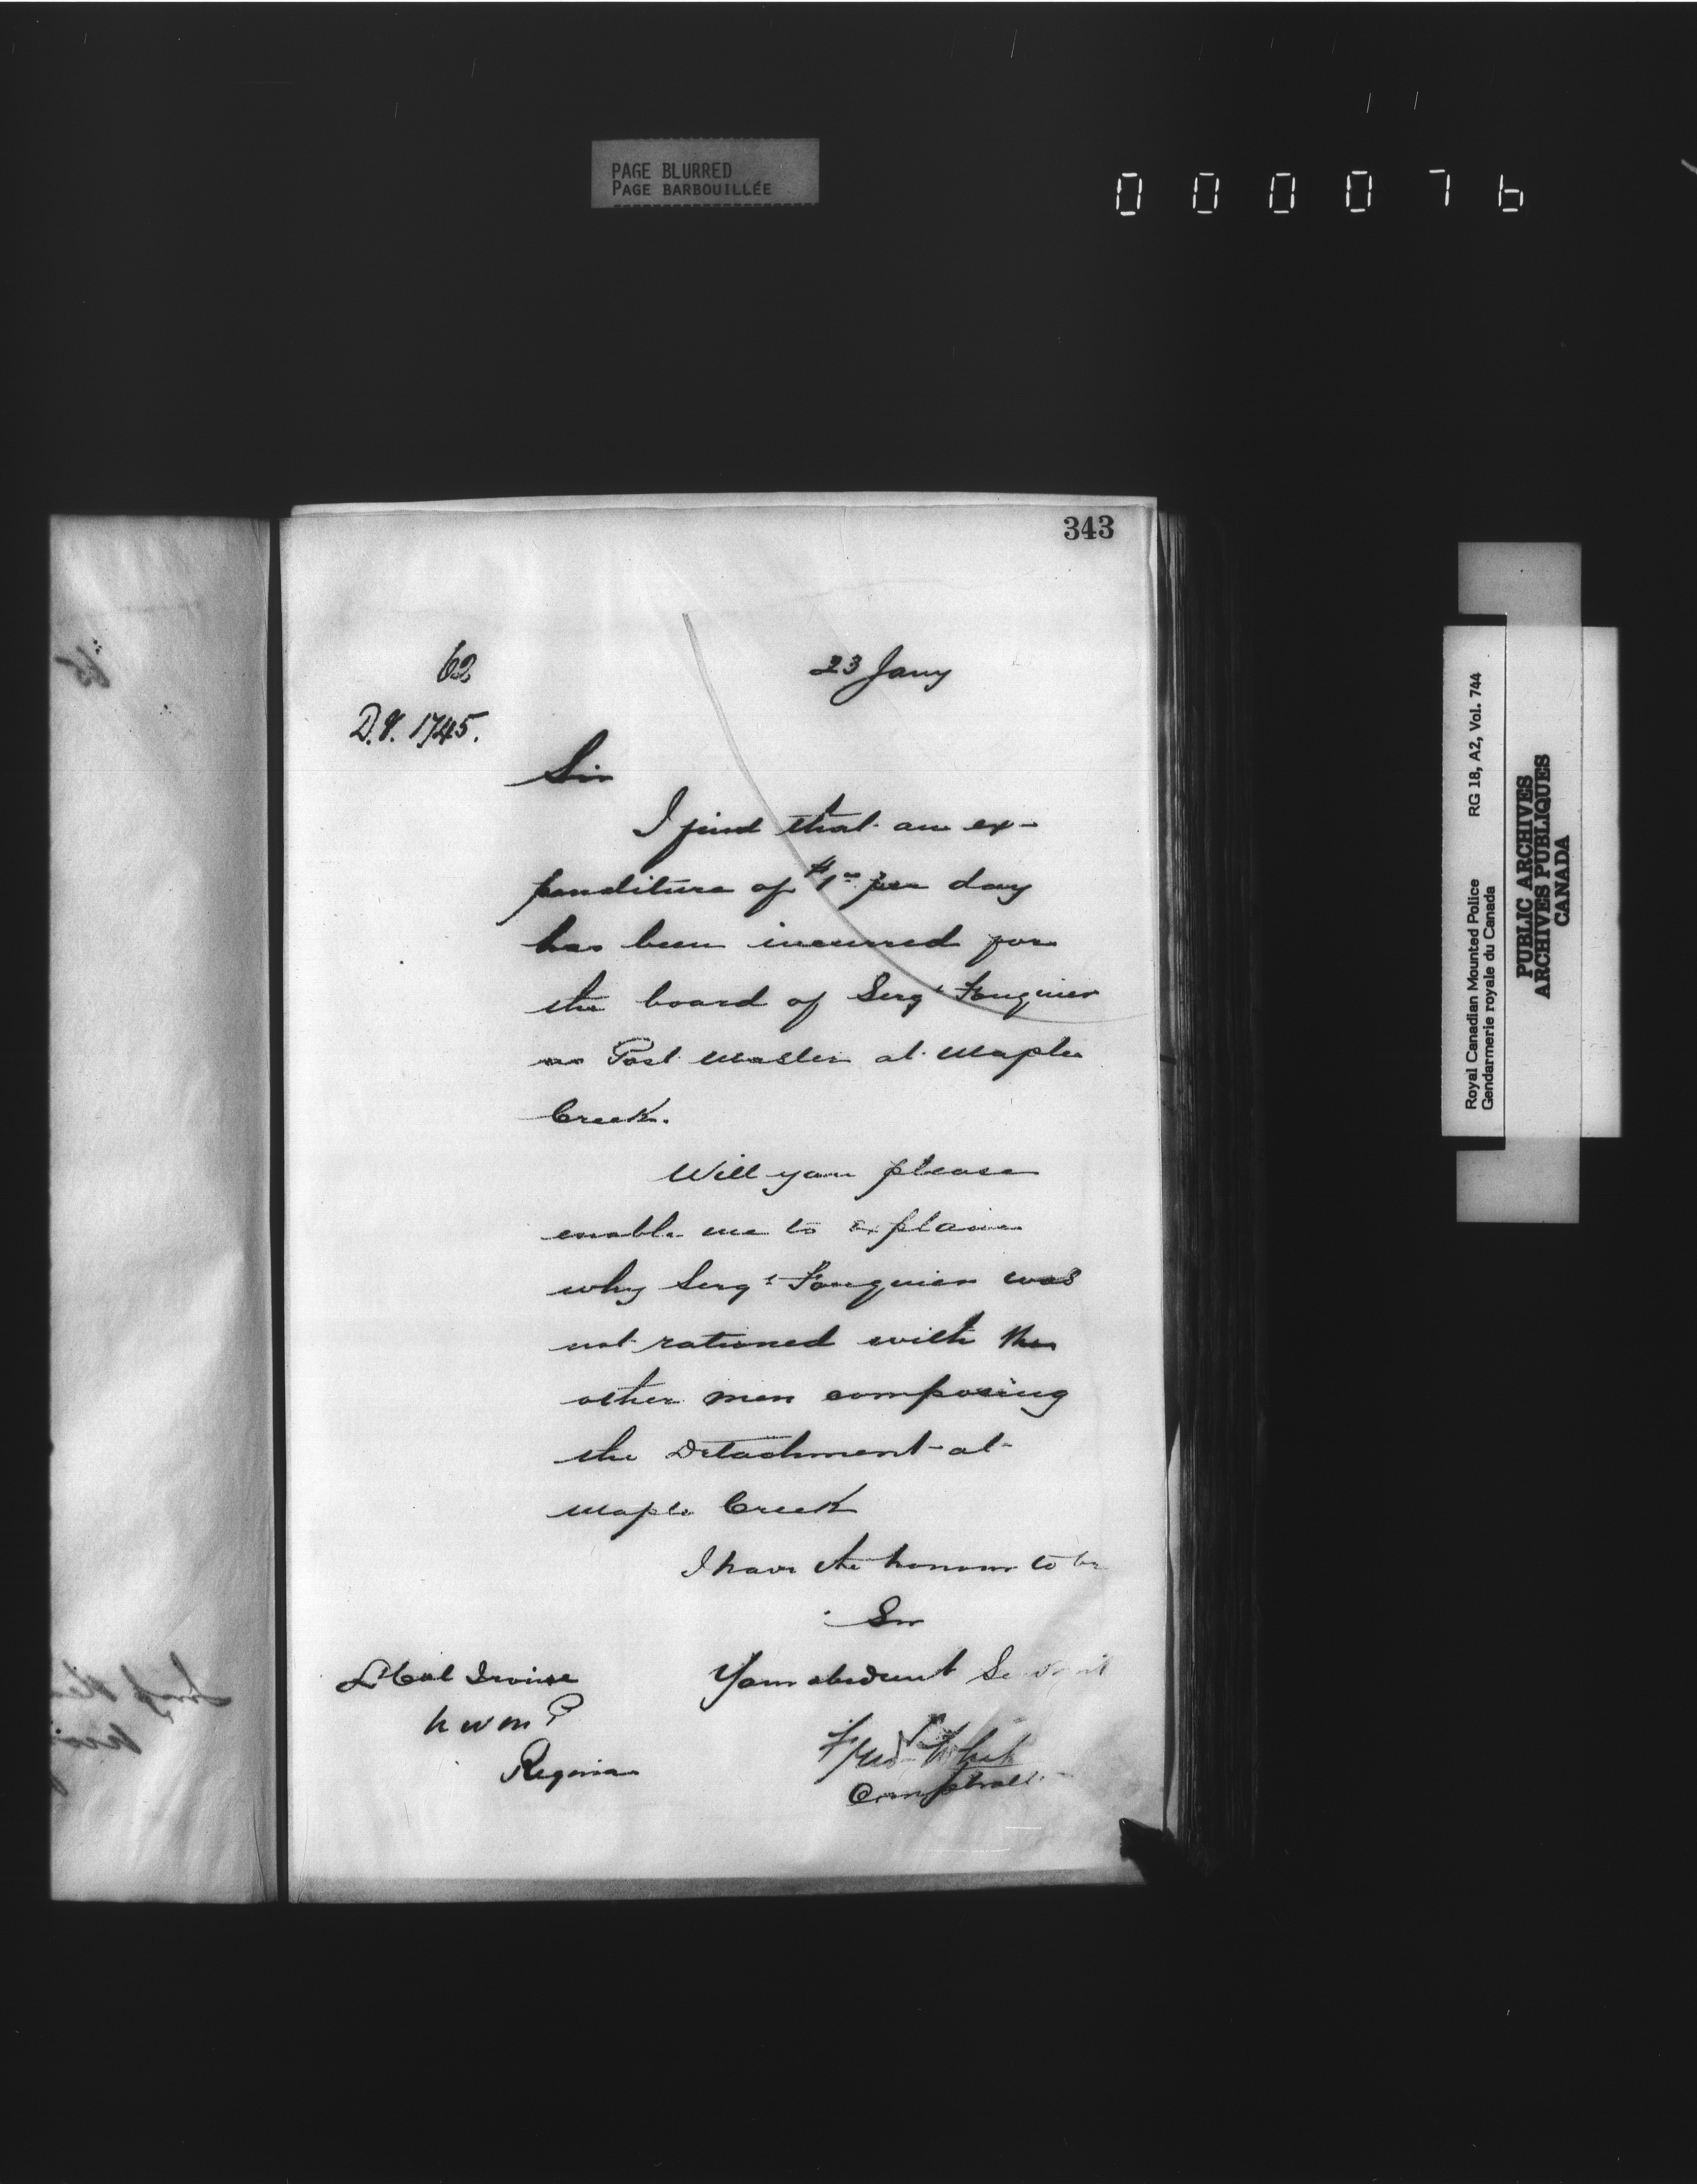 PAGE BLURRED
PAGE BARBOUILLÉE
000076
343
62
23 Jany
D.V. 1745.
Sir
I find that an ex-
penditure of $1.00 per day
has been incurred for
the board of Sergt Fouquier
as Post Master at Maple
Creek.
Will you please
enable me to explain
why Sergt Fouquier was
not rationed with the
other men composing
the Detachment at
Maple Creek
I have the honour to be
Sir
Your obedient Servant
Lt Col Irvine
N W M P
Regina
Fred White
Comptroller
Royal Canadian Mounted Police RG 18, A2, Vol. 744
Gendarmerie royale du Canada
PUBLIC ARCHIVES
ARCHIVES PUBLIQUES
CANADA